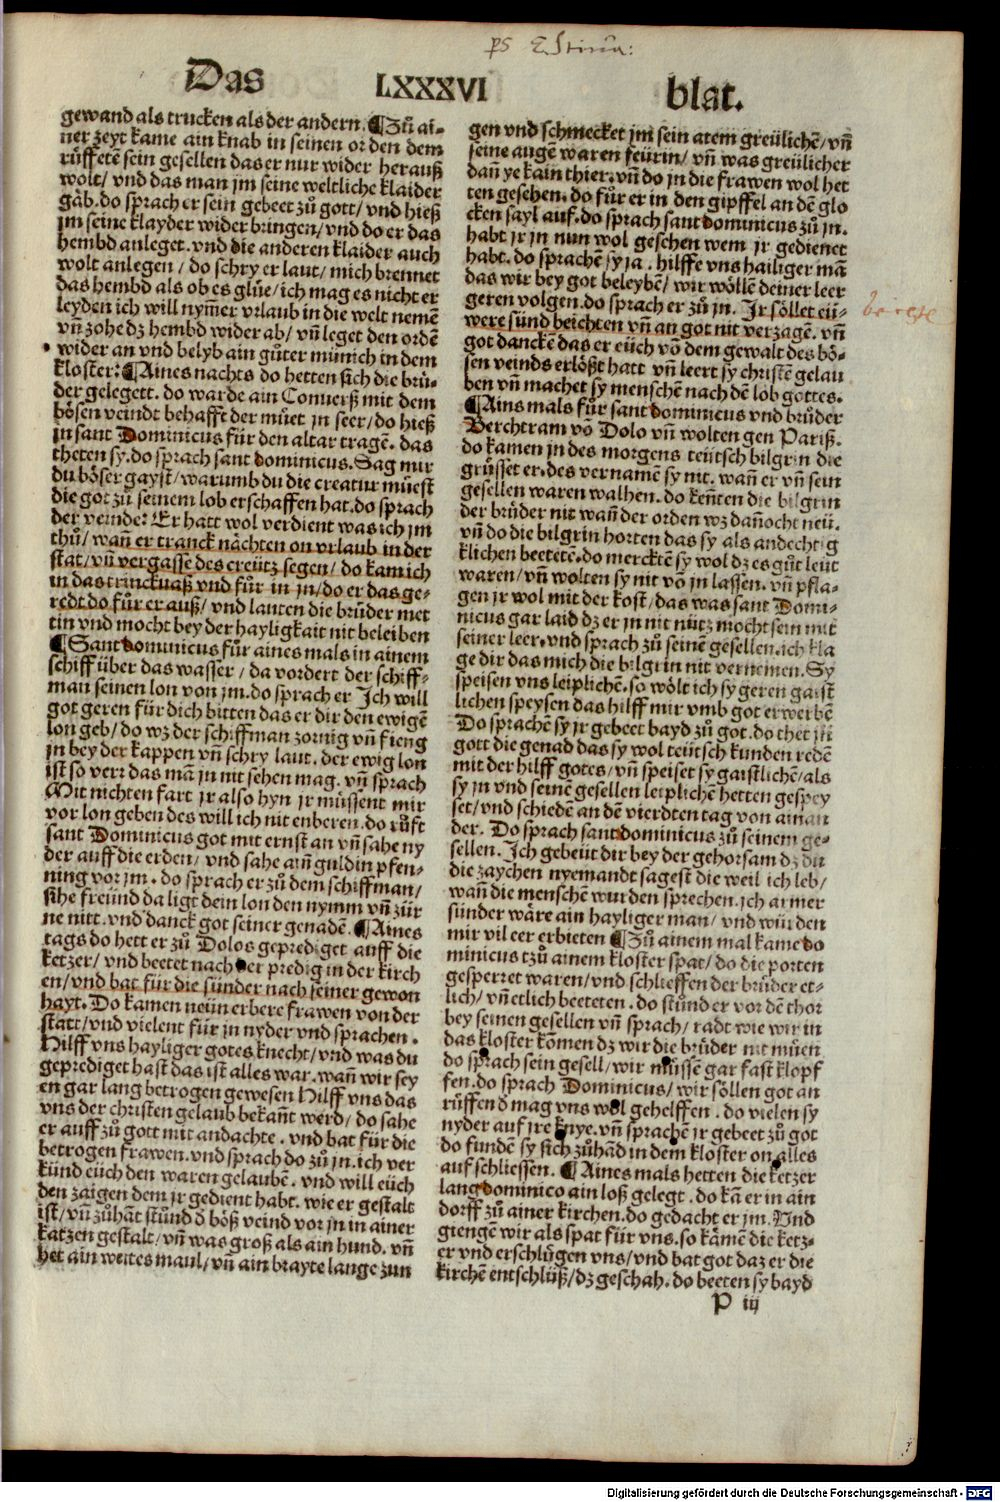 Das LXXXVI blat.
gewand als trucken als der andern. ¶Zů ai-
ner zeyt kame ain knab in seinen orden dem
růffetē sein gesellen das er nur wider herauß
wolt/ vnd das man jm seine weltliche klaider
gäb. do sprach er sein gebeet zů gott/ vnd hieß
jm seine klayder wider bringen/ vnd do er das
hembd anleget. vnd die anderen klaider auch
wolt anlegen/ do schry er laut/ mich brennet
das hembd als ob es glüe/ ich mag es nicht er
leyden ich will nym̄er vrlaub in die welt nemē
vn̄ zohe dz hembd wider ab/ vn̄ leget den ordē
wider an vnd belyb ain gůter münich in dem
kloster: ¶Aines nachts do hetten sich die brü-
der gelegett. do warde ain Conuerß mit dem
bösen veindt behafft der můet jn seer/ do hieß
jn sant Dominicus für den altar tragē. das
theten sy. do sprach sant dominicus. Sag mir
du böser gayst/ warumb du die creatur můest
die got zů seinem lob erschaffen hat. do sprach
der veinde: Er hatt wol verdient was ich jm
thů/ wan̄ er tranck nächten on vrlaub in der
stat/ vn̄ vergasse des creütz segen/ do kam ich
in das trinckuaß vnd für in jn/ do er das ge-
redt do für er auß/ vnd lauten die brüder met
tin vnd mocht bey der hayligkait nit beleiben
¶Sant dominicus für aines mals in ainem
schiff über das wasser/ da vordert der schiff-
man seinen lon von jm. do sprach er Ich will
got geren für dich bitten das er dir den ewigē
lon geb/ do wz der schiffman zornig vn̄ fieng
jn bey der kappen vn̄ schry laut. der ewig lon
ist so verr das mā jn nit sehen mag. vn̄ sprach
Mit nichten fart jr also hyn jr müssent mir
vor lon geben des will ich nit enberen. do růft
sant Dominicus got mit ernst an vn̄ sahe ny
der auff die erden/ vnd sahe ain̄ guldin pfen-
ning vor jm. do sprach er zů dem schiffman/
sihe freünd da ligt dein lon den nymm vn̄ zür
ne nitt. vnd danck got seiner genadē. ¶Aines
tags do hett er zů Dolos geprediget auff die
ketzer/ vnd beetet nach der predig in der kirch
en/ vnd bat für die sünder nach seiner gewon
hayt. Do kamen neün erbere frawen von der
statt/ vnd vielent für jn nyder vnd sprachen.
Hilff vns hayliger gotes knecht/ vnd was du
geprediget hast das ist alles war. wan̄ wir sey
en gar lang betrogen gewesen Hilff vns das
vns der christen gelaub bekan̄t werd/ do sahe
er auff zů gott mit andachte. vnd bat für die
betrogen frawen. vnd sprach do zů jn. ich ver
künd eüch den waren gelaubē. vnd will eüch
den zaigen dem jr gedient habt. wie er gestalt
ist/ vn̄ zůhāt stůnd d böß veind vor jn in ainer
katzen gestalt/ vn̄ was groß als ain hund. vn̄
het ain weites maul/ vn̄ ain brayte lange zun
gen vnd schmecket jm sein atem greülichē/ vn̄
seine augē waren feürin/ vn̄ was greülicher
dan̄ ye kain thier. vn̄ do jn die frawen wol het
ten gesehen. do für er in den gipffel an dē glo
cken sayl auf. do sprach sant dominicus zů jn.
habt jr jn nun wol gesehen wem jr gedienet
habt. do sprachē sy ja. hilffe vns hailiger mā
das wir bey got beleybē/ wir wöllē deiner leer
geren volgen. do sprach er zů jn. Jr söllet eü-
were sünd beichten vn̄ an got nit verzagē. vn̄
got danckē das er eüch vō dem gewalt des bö-
sen veinds erlößt hatt vn̄ leert sy christē gelau
ben vn̄ machet sy menschē nach dē lob gottes.
¶Ains mals für sant dominicus vnd brüder
Berchtram vō Dolo vn̄ wolten gen Pariß.
do kamen jn des morgens teütsch bilgrin die
grüsset er. des vernamē sy nit. wan̄ er vn̄ sein
gesellen waren walhen. do ken̄ten die bilgrin
der brüder nit wan̄ der orden wz dan̄ocht neü.
vn̄ do die bilgrin horten das sy als andechtig
klichen beetetē. do mercktē sy wol dz es gůt leüt
waren/ vn̄ wolten sy nit vō jn lassen. vn̄ pfla-
gen jr wol mit der kost/ das was sant Domi-
nicus gar laid dz er jn nit nütz mocht sein mit
seiner leer. vnd sprach zů seinē gesellen. ich kla
ge dir das mich die bilgrin nit vernemen. Sy
speisen vns leiplichē. so wölt ich sy geren gaist
lichen speysen das hilff mir vmb got erwerbē
Do sprachē sy jr gebeet bayd zů got. do thet jn
gott die genad das sy wol teütsch kunden redē
mit der hilff gotes/ vn̄ speiset sy gaistlichē/ als
sy jn vnd seinē gesellen leiplichē hetten gespey
set/ vnd schiedē an dē vierdten tag von ainan
der. Do sprach sant dominicus zů seinem ge-
sellen. Ich gebeüt dir bey der gehorsam dz du
die zaychen nyemandt sagest die weil ich leb/
wan̄ die menschē wurden sprechen. ich armer
sünder wäre ain hayliger man/ vnd würden
mir vil eer erbieten ¶Zů ainem mal kame do
minicus tzů ainem kloster spat/ do die porten
gesperret waren/ vnd schlieffen der brüder et-
lich/ vn̄ etlich beeteten. do stůnd er vor dē thor
bey seinen gesellen vn̄ sprach/ radt wie wir in
das kloster kōmen dz wir die brüder nit müen
do sprach sein gesell/ wir müssen gar fast klopf
fen. do sprach Dominicus/ wir söllen got an
rüffen d mag vns wol gehelffen. do vielen sy
nyder auf jre knye. vn̄ sprachē jr gebeet zů got
do fundē sy sich zůhād in dem kloster on alles
auf schliessen. ¶Aines mals hetten die ketzer
lang dominico ain loß gelegt. do kā er in ain
dorff zů ainer kirchen. do gedacht er jm. Vnd
giengē wir als spat für vns. so kämē die ketz-
er vnd erschlügen vns/ vnd bat got daz er die
kirchē entschlüß/ dz geschah. do beeten sy bayd
P iij
Digitalisierung gefördert durch die Deutsche Forschungsgemeinschaft - DFG